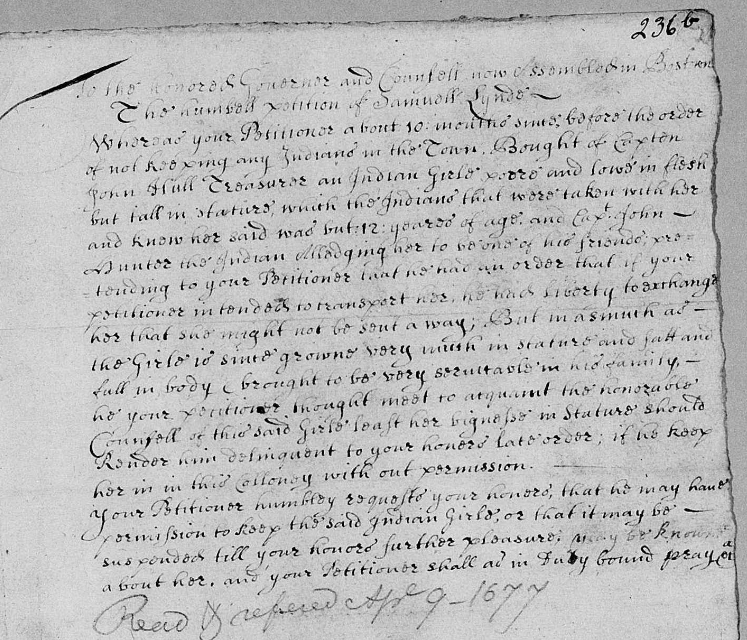 236b
To the Honored Governer and Counsell now Assembled in Boston
The humbell petition of Samuell Lynde
Whereas your Petitioner about 10: months since, before the order
of not keeping any Indians in the Town. Bought of Capten
John Hull Treasurer an Indian Girle poore and lowe in flesh
but tall in stature, which the Indians that were taken with her
and knew her said was but: 12: yeares of age, and Capt. John
Hunter the Indian Alledging her to be one of his friends, pre=
=tending to your Petitioner that he had an order that if your
petitioner intended to transport her, he had liberty to exchange
her that she might not be sent a way; But in asmuch as
the Girle is since growne very much in stature and fatt and
full in body & brought to be very servicable in his family,
he your petitioner thought meet to acquaint the honorable
Counsell of this said Girle least her bignesse in stature should
Render him delinquent to your honers late order; if he keep
her in in this Colloney with out permission.
Your Petitioner humbley requests your honers, that he may have
permission to keep the said Indian Girle, or that it may be
suspended till your honors further pleasure, may be known
about her, and your Petitioner shall as in Duty bound pray &c
Read & refered Apr 9 - 1677